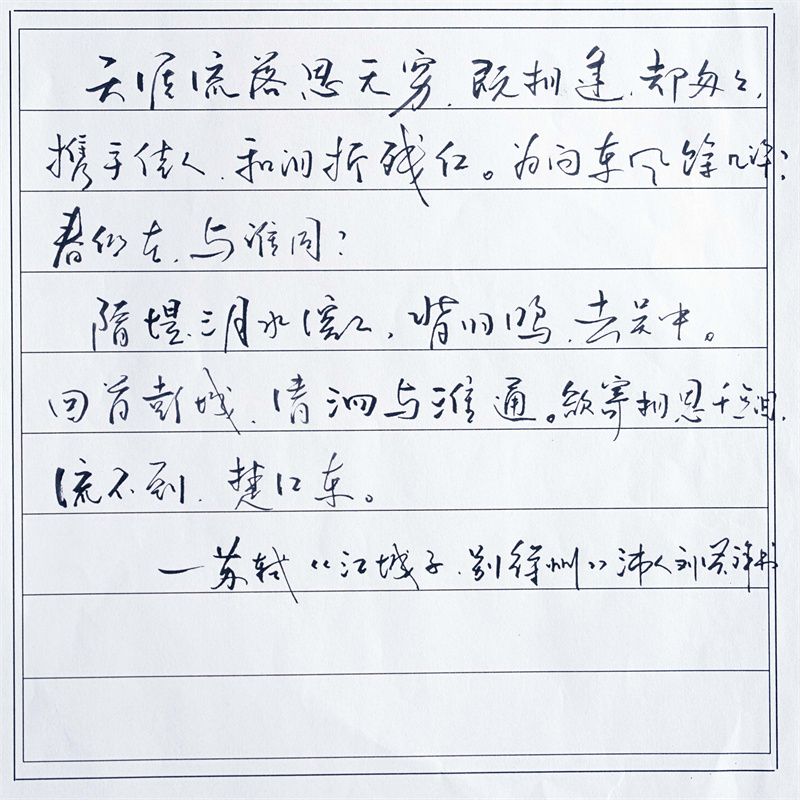 天涯流落思无穷，既相逢，却匆匆，
携手佳人，和泪折残红。为问东风馀几许？
春纵在，与谁同？
隋堤三月水溶溶，背归鸿，去吴中。
回首彭城，清泗与淮通。欲寄相思千点泪，
流不到，楚江东。
—苏轼《江城子·别徐州》沛人刘